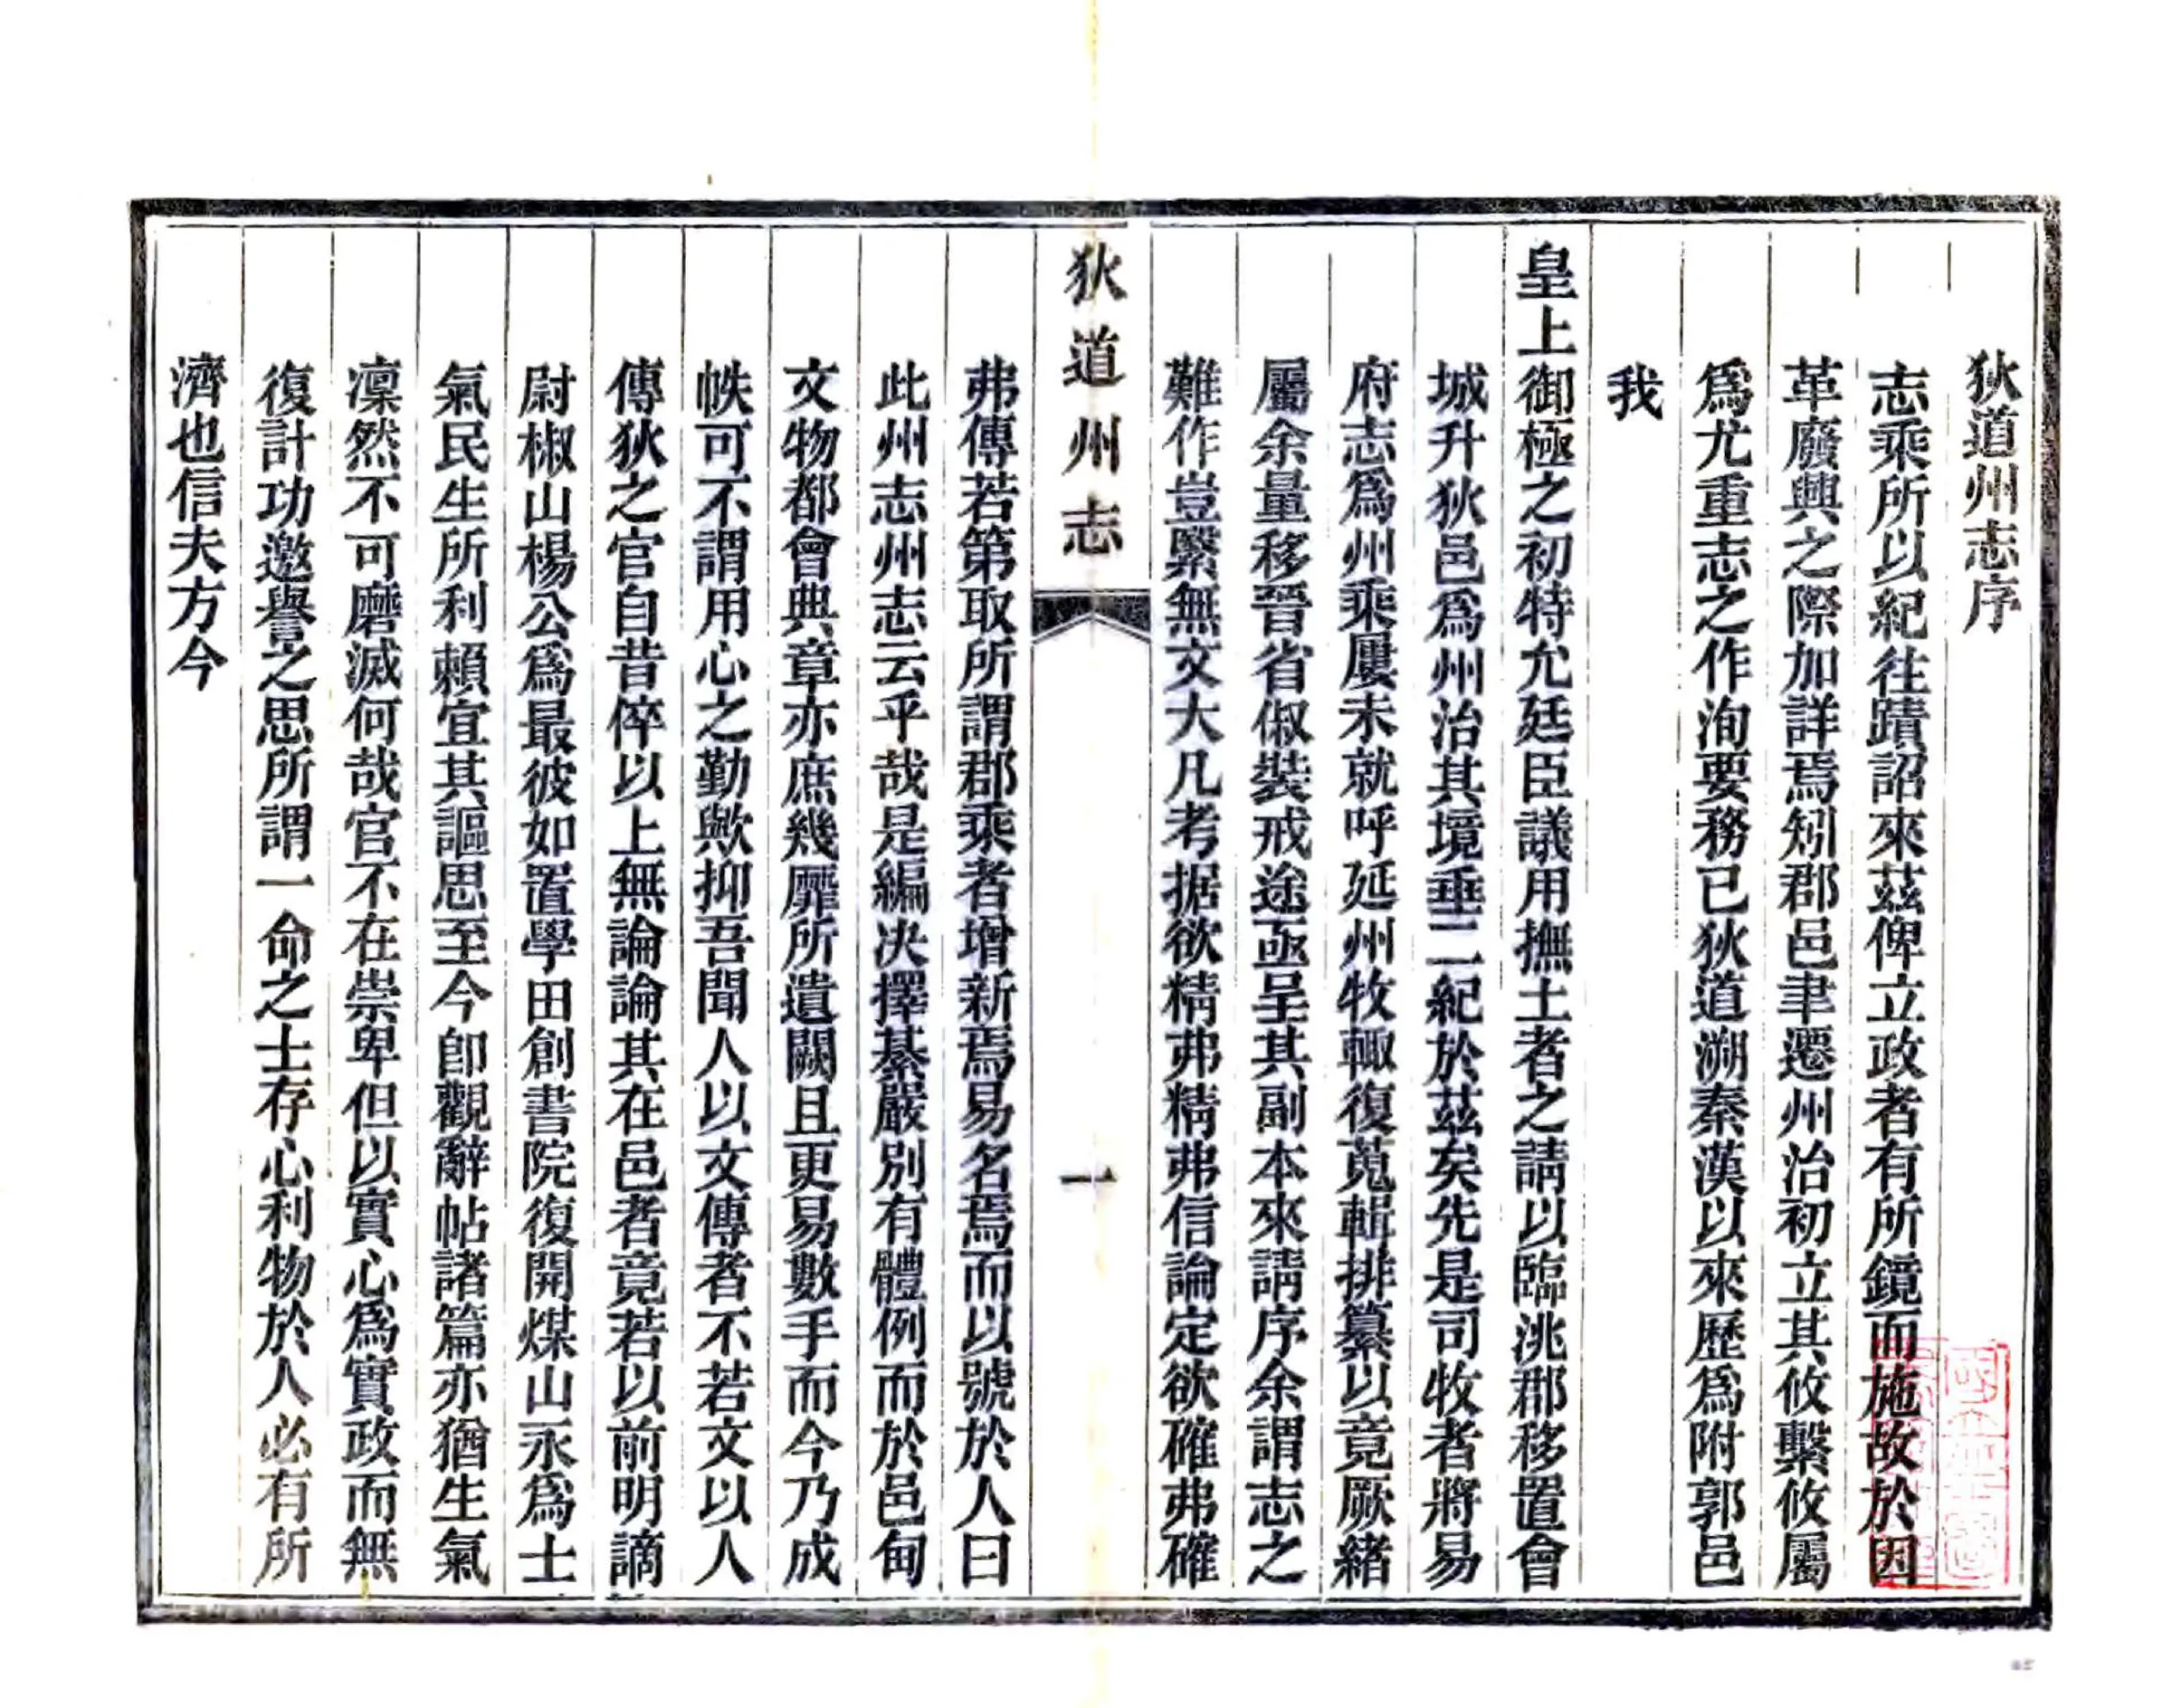 狄道州志序
志乘所以紀往蹟詔來茲俾立政者有所鏡而施故於因
革廢興之際加詳焉矧郡邑聿遷州治初立其攸繫攸屬
爲尤重志之作洵要務已狄道溯秦漢以來歷爲附郭邑
我
皇上御極之初特允廷臣議用撫土者之請以臨洮郡移置會
城升狄邑爲州治其境垂二紀於茲矣先是司牧者將易
府志爲州乘屢未就呼延州牧輙復蒐輯排纂以竟厥緒
屬余量移晉省俶裝戒途亟呈其副本來請序余謂志之
難作豈緊無文大凡考据欲精弗精弗信論定欲確弗確
狄道州志
一
弗傳若第取所謂郡乘者增新焉易名焉而以號於人曰
此州志州志云乎哉是編决擇綦嚴別有體例而於邑甸
文物都會典章亦庶幾靡所遺闕且更易數手而今乃成
帙可不謂用心之勤歟抑吾聞人以文傳者不若文以人
傳狄之官自昔倅以上無論論其在邑者竟若以前明謫
尉椒山楊公爲最彼如置學田創書院復開煤山永爲士
氣民生所利賴宜其謳思至今卽觀辭帖諸篇亦猶生氣
凜然不可磨滅何哉官不在崇卑但以實心爲實政而無
復計功邀譽之思所謂一命之士存心利物於人必有所
濟也信夫方今